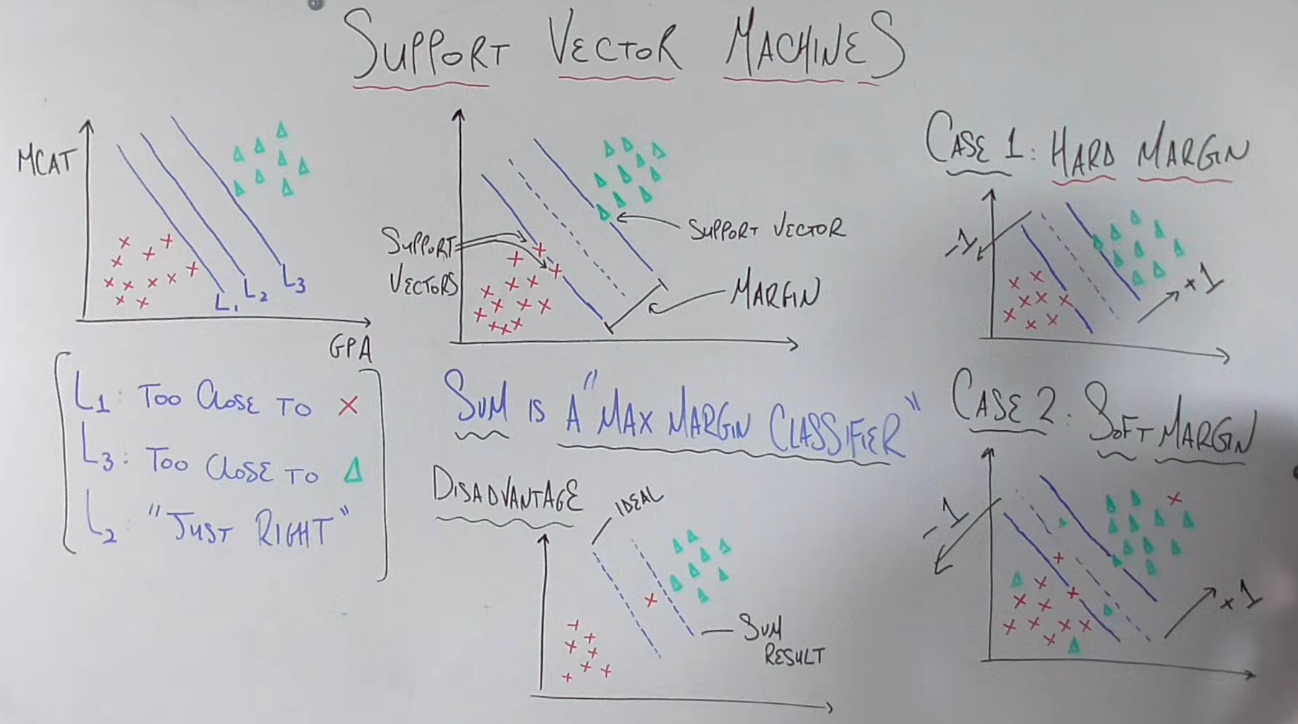 SUPPORT VECTOR MACHINES
MCAT
L1
L2
L3
GPA
L1: TOO CLOSE TO X
L3: TOO CLOSE TO Δ
L2 "JUST RIGHT"
SUPPORT
VECTORS
SUPPORT VECTOR
MARGIN
SVM IS A "MAX MARGIN CLASSIFIER"
DISADVANTAGE
IDEAL
SVM
RESULT
CASE 1: HARD MARGIN
-1
+1
CASE 2: SOFT MARGIN
-1
+1